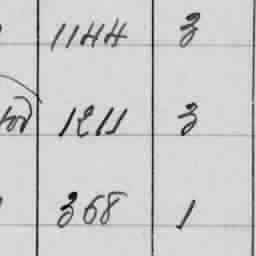 1144 3
1211 3
368 1